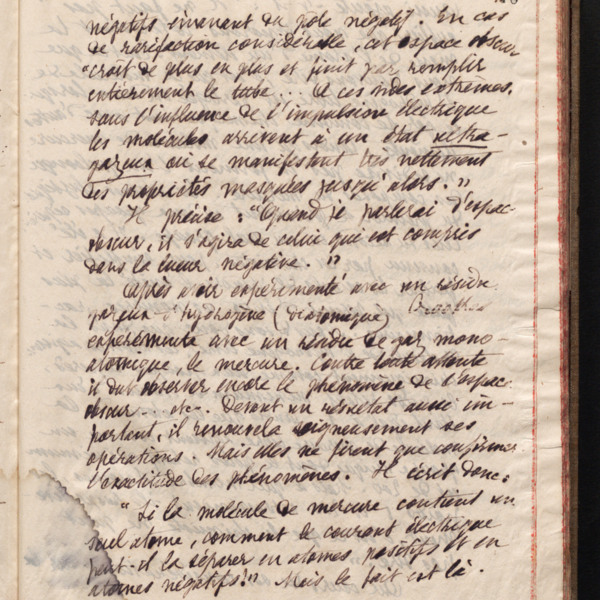 négatifs émanent du pôle négatif. En cas
de raréfaction considérable, cet espace obscur
"croît de plus en plus et finit par remplir
entièrement le tube... A ces vides extrêmes,
sous l'influence de l'impulsion électrique
les molécules arrivent à un état ultra-
gazeux où se manifestent très nettement
des propriétés masquées jusqu'alors."
Il précise : "Quand je parlerai d'espac
obscur, il s'agira de celui qui est compris
dans la lueur négative."
Après avoir expérimenté avec un résidu
gazeux d'hydrogène (diatomique) Crookes
expérimente avec un résidu de gaz mono-
atomique, le mercure. Contre toute attente
il dut observer encore le phénomène de l'espace
obscur... etc. Devant un résultat aussi im-
portant, il renouvela soigneusement ses
opérations. Mais elles ne firent que confirmer
l'exactitude des phénomènes. Il écrit donc :
"Si la molécule de mercure contient un
seul atome, comment le courant électrique
peut-il la séparer en atomes positifs et en
atomes négatifs ?" Mais le fait est là.